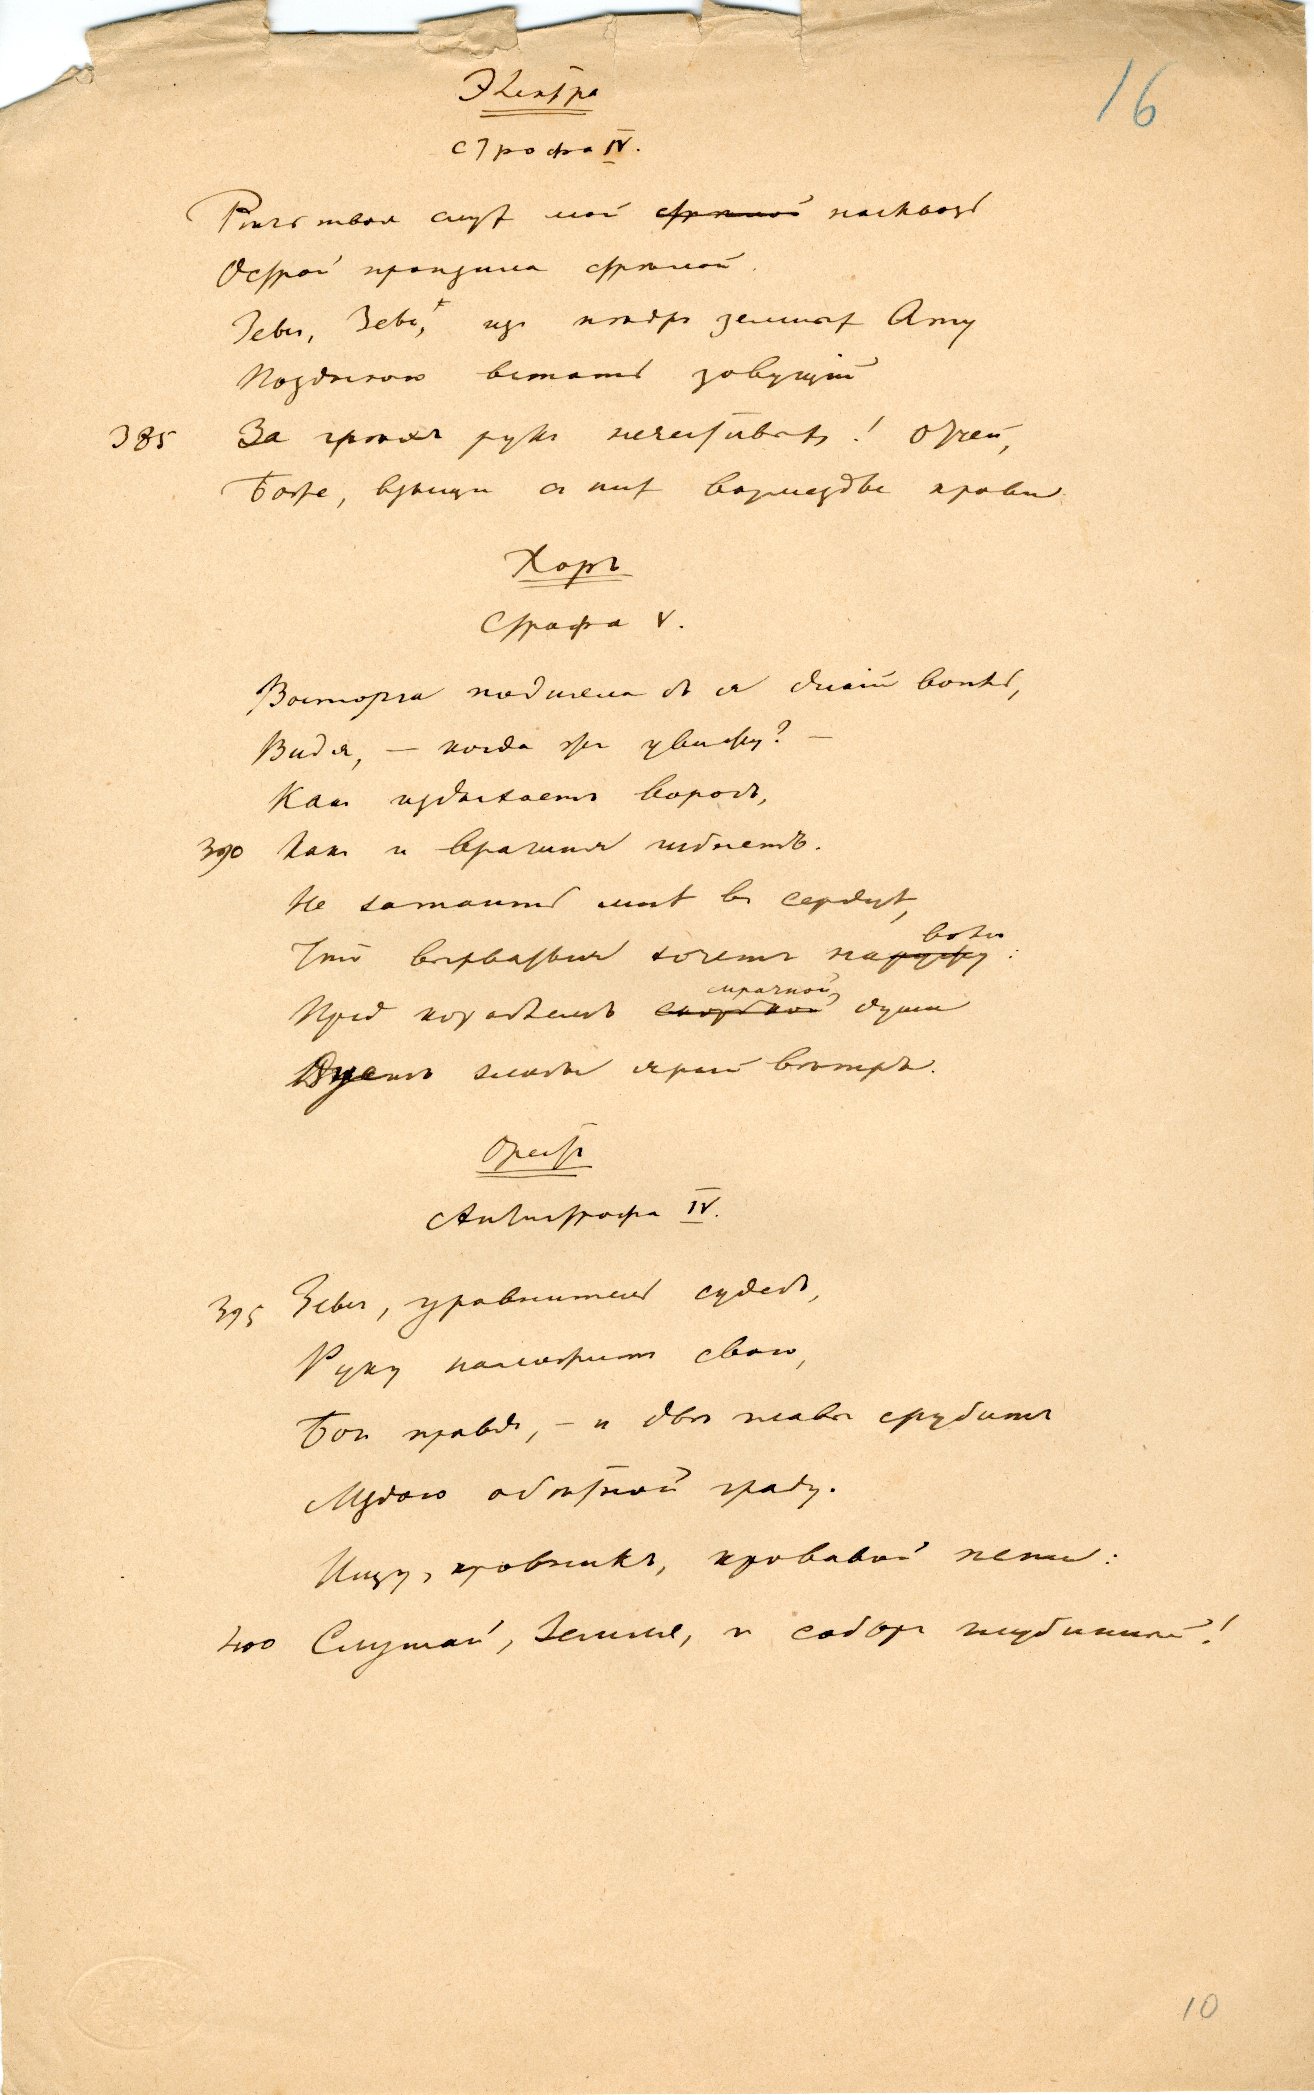 16
Электра
Строфа IV.
Рѣчь твоя слухъ мой стрѣлой насквозь
Острой пронзила стрѣлой.
Зевсъ, Зевсъ, изъ нѣдръ земныхъ Ату
Позднюю встать зовущій
385 За грѣхъ рукъ нечестивыхъ! Отчей,
Боже, взыщи съ нихъ возмездье крови
Хоръ
Строфа V.
Восторга подъяла бъ я дикій вопль,
Видя, — когда же увижу? —
Какъ издыхаетъ ворогъ,
390 Какъ и врагиня гибнетъ.
Не затаить мнѣ въ сердцѣ,
Что вырваться хочетъ наружу вонъ:
Предъ кораблемъ скорбной мрачной души
Дуетъ злобы ярый вѣтръ.
Орестъ
Антистрофа IV.
395 Зевсъ, уравнитель судебъ,
Руку наложитъ свою,
Богъ правды, — и двѣ главы срубитъ
Мздою обѣтной граду.
Ищу, кровникъ, кровавой пени:
400 Слушай, Земля, и соборъ глубинный!
10